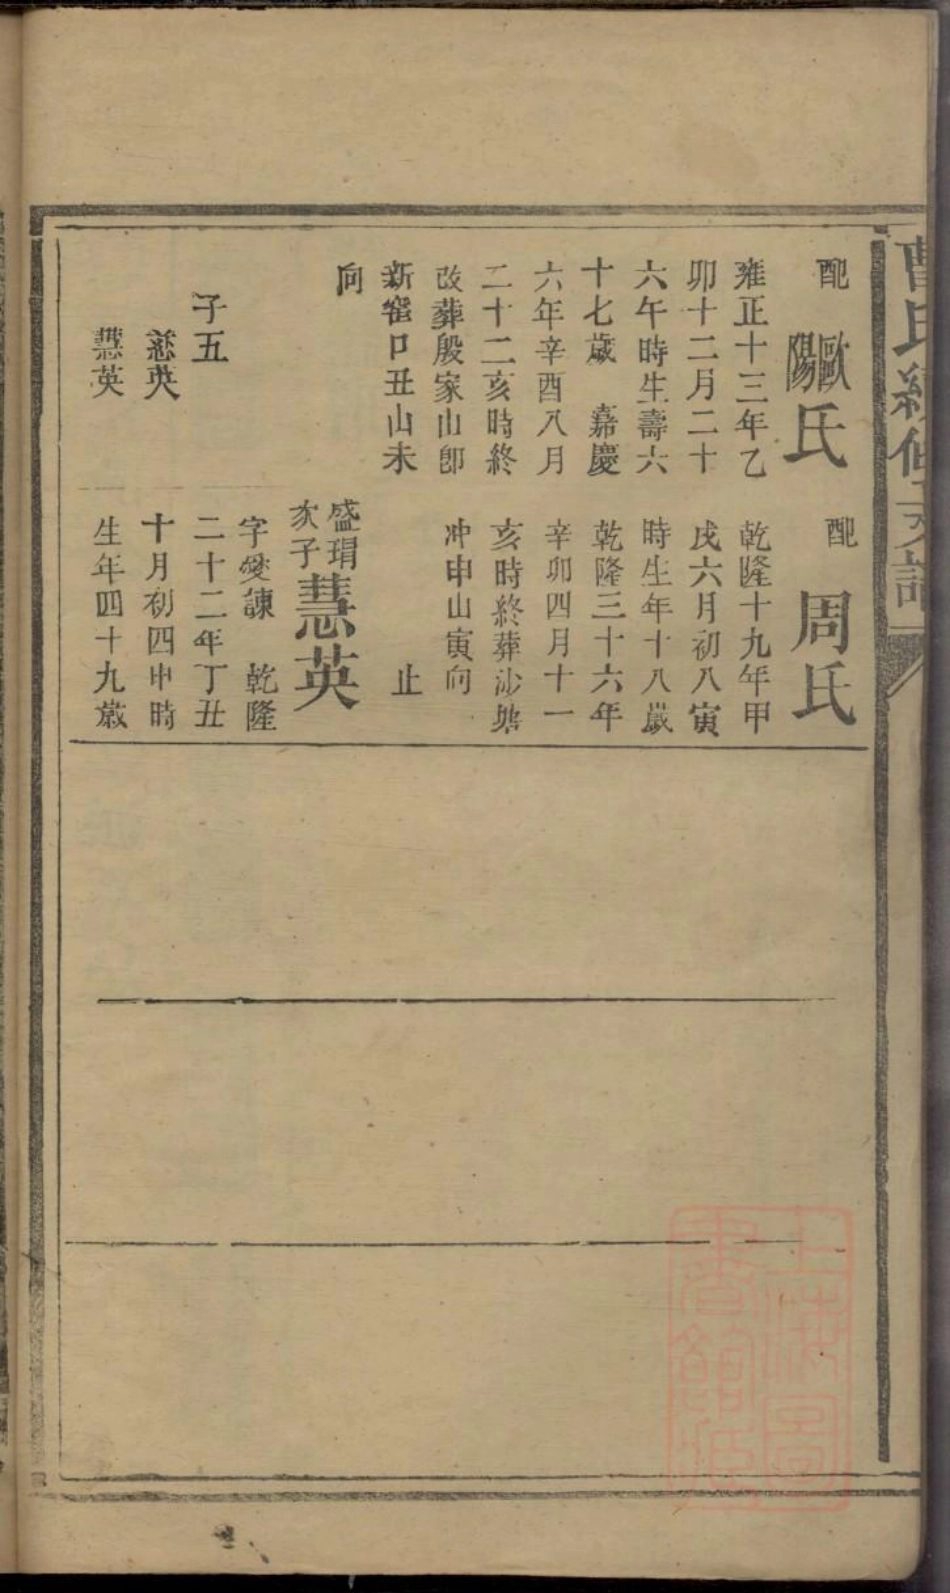 曹氏續修支譜
配歐陽氏
雍正十三年乙
卯十二月二十
六午時生壽六
十七歲 嘉慶
六年辛酉八月
二十二亥時終
改葬殷家山卽
新窰口丑山未
向
子五
慈英
慧英
配 周氏
乾隆十九年甲
戌六月初八寅
時生年十八歲
乾隆三十六年
辛卯四月十一
亥時終葬沙塘
冲申山寅向
止
盛瑁次子慧英
字愛諫 乾隆
二十二年丁丑
十月初四申時
生年四十九歲
上海圖書館藏